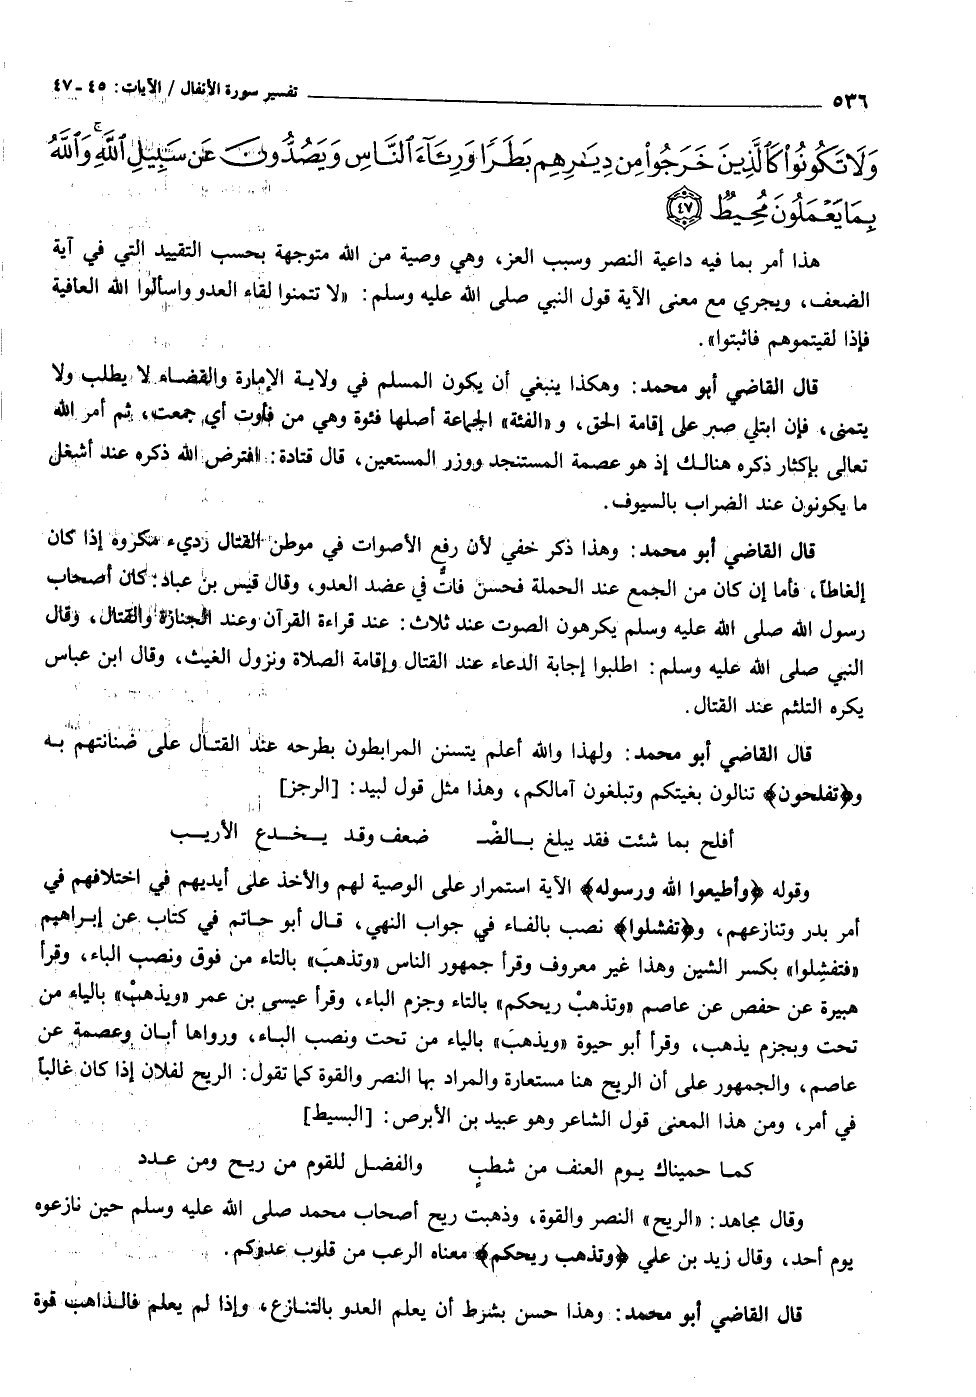 ٥٣٦ ــــــــ تفسير سورة الأنفال / الآيات: ٤٥ ـ ٤٧
وَلَا تَكُونُوا۟ كَٱلَّذِينَ خَرَجُوا۟ مِن دِيَـٰرِهِم بَطَرًا وَرِئَآءَ ٱلنَّاسِ وَيَصُدُّونَ عَن سَبِيلِ ٱللَّهِۚ وَٱللَّهُ
بِمَا يَعْمَلُونَ مُحِيطٌ ٤٧
هذا أمر بما فيه داعية النصر وسبب العز، وهي وصية من الله متوجهة بحسب التقييد التي في آية
الضعف، ويجري مع معنى الآية قول النبي صلى الله عليه وسلم: «لا تتمنوا لقاء العدو واسألوا الله العافية
فإذا لقيتموهم فاثبتوا».
قال القاضي أبو محمد: وهكذا ينبغي أن يكون المسلم في ولاية الإمارة والقضاء لا يطلب ولا
يتمنى، فإن ابتلي صبر على إقامة الحق، و «الفئة» الجماعة أصلها فئوة وهي من فأوت أي جمعت، ثم أمر الله
تعالى بإكثار ذكره هنالك إذ هو عصمة المستنجد ووزر المستعين، قال قتادة: افترض الله ذكره عند أشغل
ما يكونون عند الضراب بالسيوف.
قال القاضي أبو محمد: وهذا ذكر خفي لأن رفع الأصوات في موطن القتال رديء مكروه إذا كان
إلغاطاً، فأما إن كان من الجمع عند الحملة فحسن فاتٌّ في عضد العدو، وقال قيس بن عباد: كان أصحاب
رسول الله صلى الله عليه وسلم يكرهون الصوت عند ثلاث: عند قراءة القرآن وعند الجنازة والقتال، وقال
النبي صلى الله عليه وسلم: اطلبوا إجابة الدعاء عند القتال وإقامة الصلاة ونزول الغيث، وقال ابن عباس
يكره التلثم عند القتال.
قال القاضي أبو محمد: ولهذا والله أعلم يتسنن المرابطون بطرحه عند القتال على ضنانتهم به
و﴿تفلحون﴾ تنالون بغيتكم وتبلغون آمالكم، وهذا مثل قول لبيد: [الرجز]
أفلح بما شئت فقد يبلغ بالضْـ ضعف وقد يخدع الأريب
وقوله ﴿وأطيعوا الله ورسوله﴾ الآية استمرار على الوصية لهم والأخذ على أيديهم في اختلافهم في
أمر بدر وتنازعهم، و﴿تفشلوا﴾ نصب بالفاء في جواب النهي، قال أبو حاتم في كتاب عن إبراهيم
«فتفشِلوا» بكسر الشين وهذا غير معروف وقرأ جمهور الناس «وتذهبَ» بالتاء من فوق ونصب الباء، وقرأ
هبيرة عن حفص عن عاصم «وتذهبْ ريحكم» بالتاء وجزم الباء، وقرأ عيسى بن عمر «ويذهبْ» بالياء من
تحت وبجزم يذهب، وقرأ أبو حيوة «ويذهبَ» بالياء من تحت ونصب الباء، ورواها أبان وعصمة عن
عاصم، والجمهور على أن الريح هنا مستعارة والمراد بها النصر والقوة كما تقول: الريح لفلان إذا كان غالباً
في أمر، ومن هذا المعنى قول الشاعر وهو عبيد بن الأبرص: [البسيط]
كما حميناك يوم العنف من شطبٍ والفضل للقوم من ريح ومن عدد
وقال مجاهد: «الريح» النصر والقوة، وذهبت ريح أصحاب محمد صلى الله عليه وسلم حين نازعوه
يوم أحد، وقال زيد بن علي ﴿وتذهب ريحكم﴾ معناه الرعب من قلوب عدوكم.
قال القاضي أبو محمد: وهذا حسن بشرط أن يعلم العدو بالتنازع، وإذا لم يعلم فالذاهب قوة